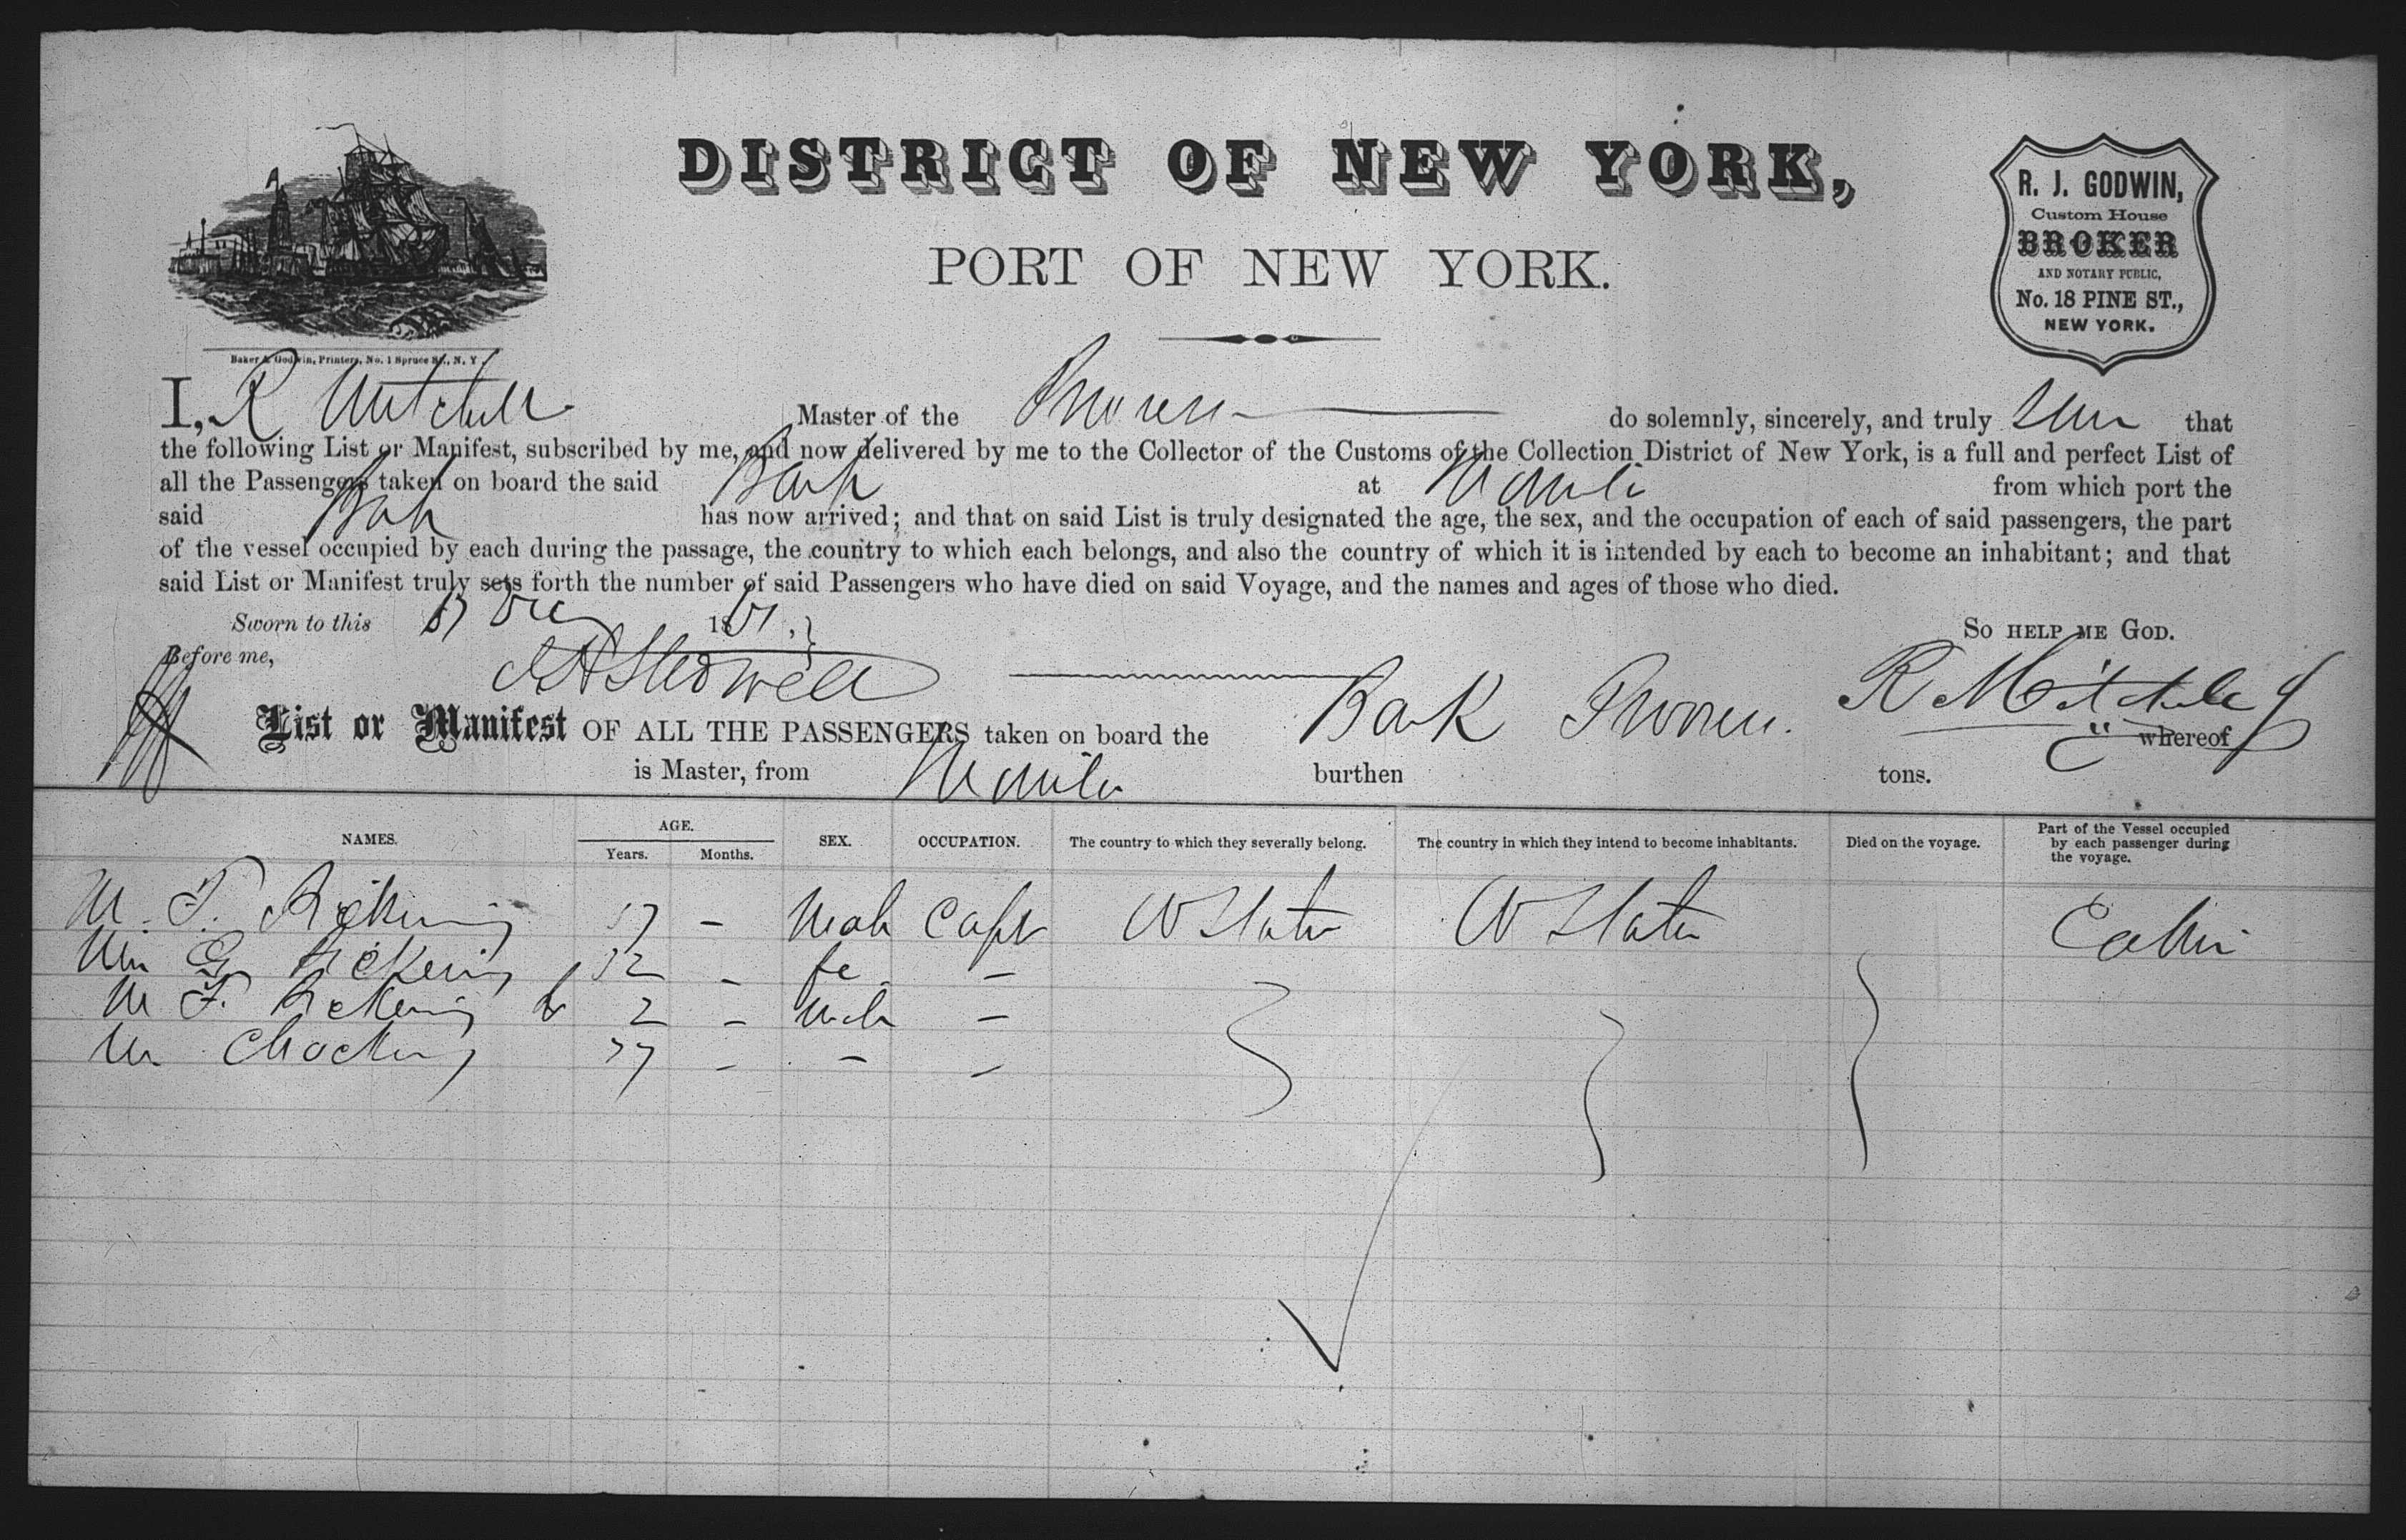 DISTRICT OF NEW YORK,
PORT OF NEW YORK.
R. J. GODWIN,
Custom House
BROKER
AND NOTARY PUBLIC,
No. 18 PINE ST.,
NEW YORK.
Baker & Godwin, Printers, No. 1 Spruce St., N. Y.
I, R Mitchell Master of the do solemnly, sincerely, and truly that
the following List or Manifest, subscribed by me, and now delivered by me to the Collector of the Customs of the Collection District of New York, is a full and perfect List of
all the Passengers taken on board the said Bark at Manila from which port the
said Bark has now arrived; and that on said List is truly designated the age, the sex, and the occupation of each of said passengers, the part
of the vessel occupied by each during the passage, the country to which each belongs, and also the country of which it is intended by each to become an inhabitant; and that
said List or Manifest truly sets forth the number of said Passengers who have died on said Voyage, and the names and ages of those who died.
Sworn to this 18 So HELP ME GOD.
Before me,
R Mitchell
List or Manifest OF ALL THE PASSENGERS taken on board the Bark " whereof
is Master, from Manila burthen tons.
NAMES. AGE. SEX. OCCUPATION. The country to which they severally belong. The country in which they intend to become inhabitants. Died on the voyage. Part of the Vessel occupied by each passenger during the voyage.
Years. Months.
M. T. Pickering - Male Capt U States U States Cabin
G Pickering 32 - fe -
M T. Pickering 2 - Male -
- - -